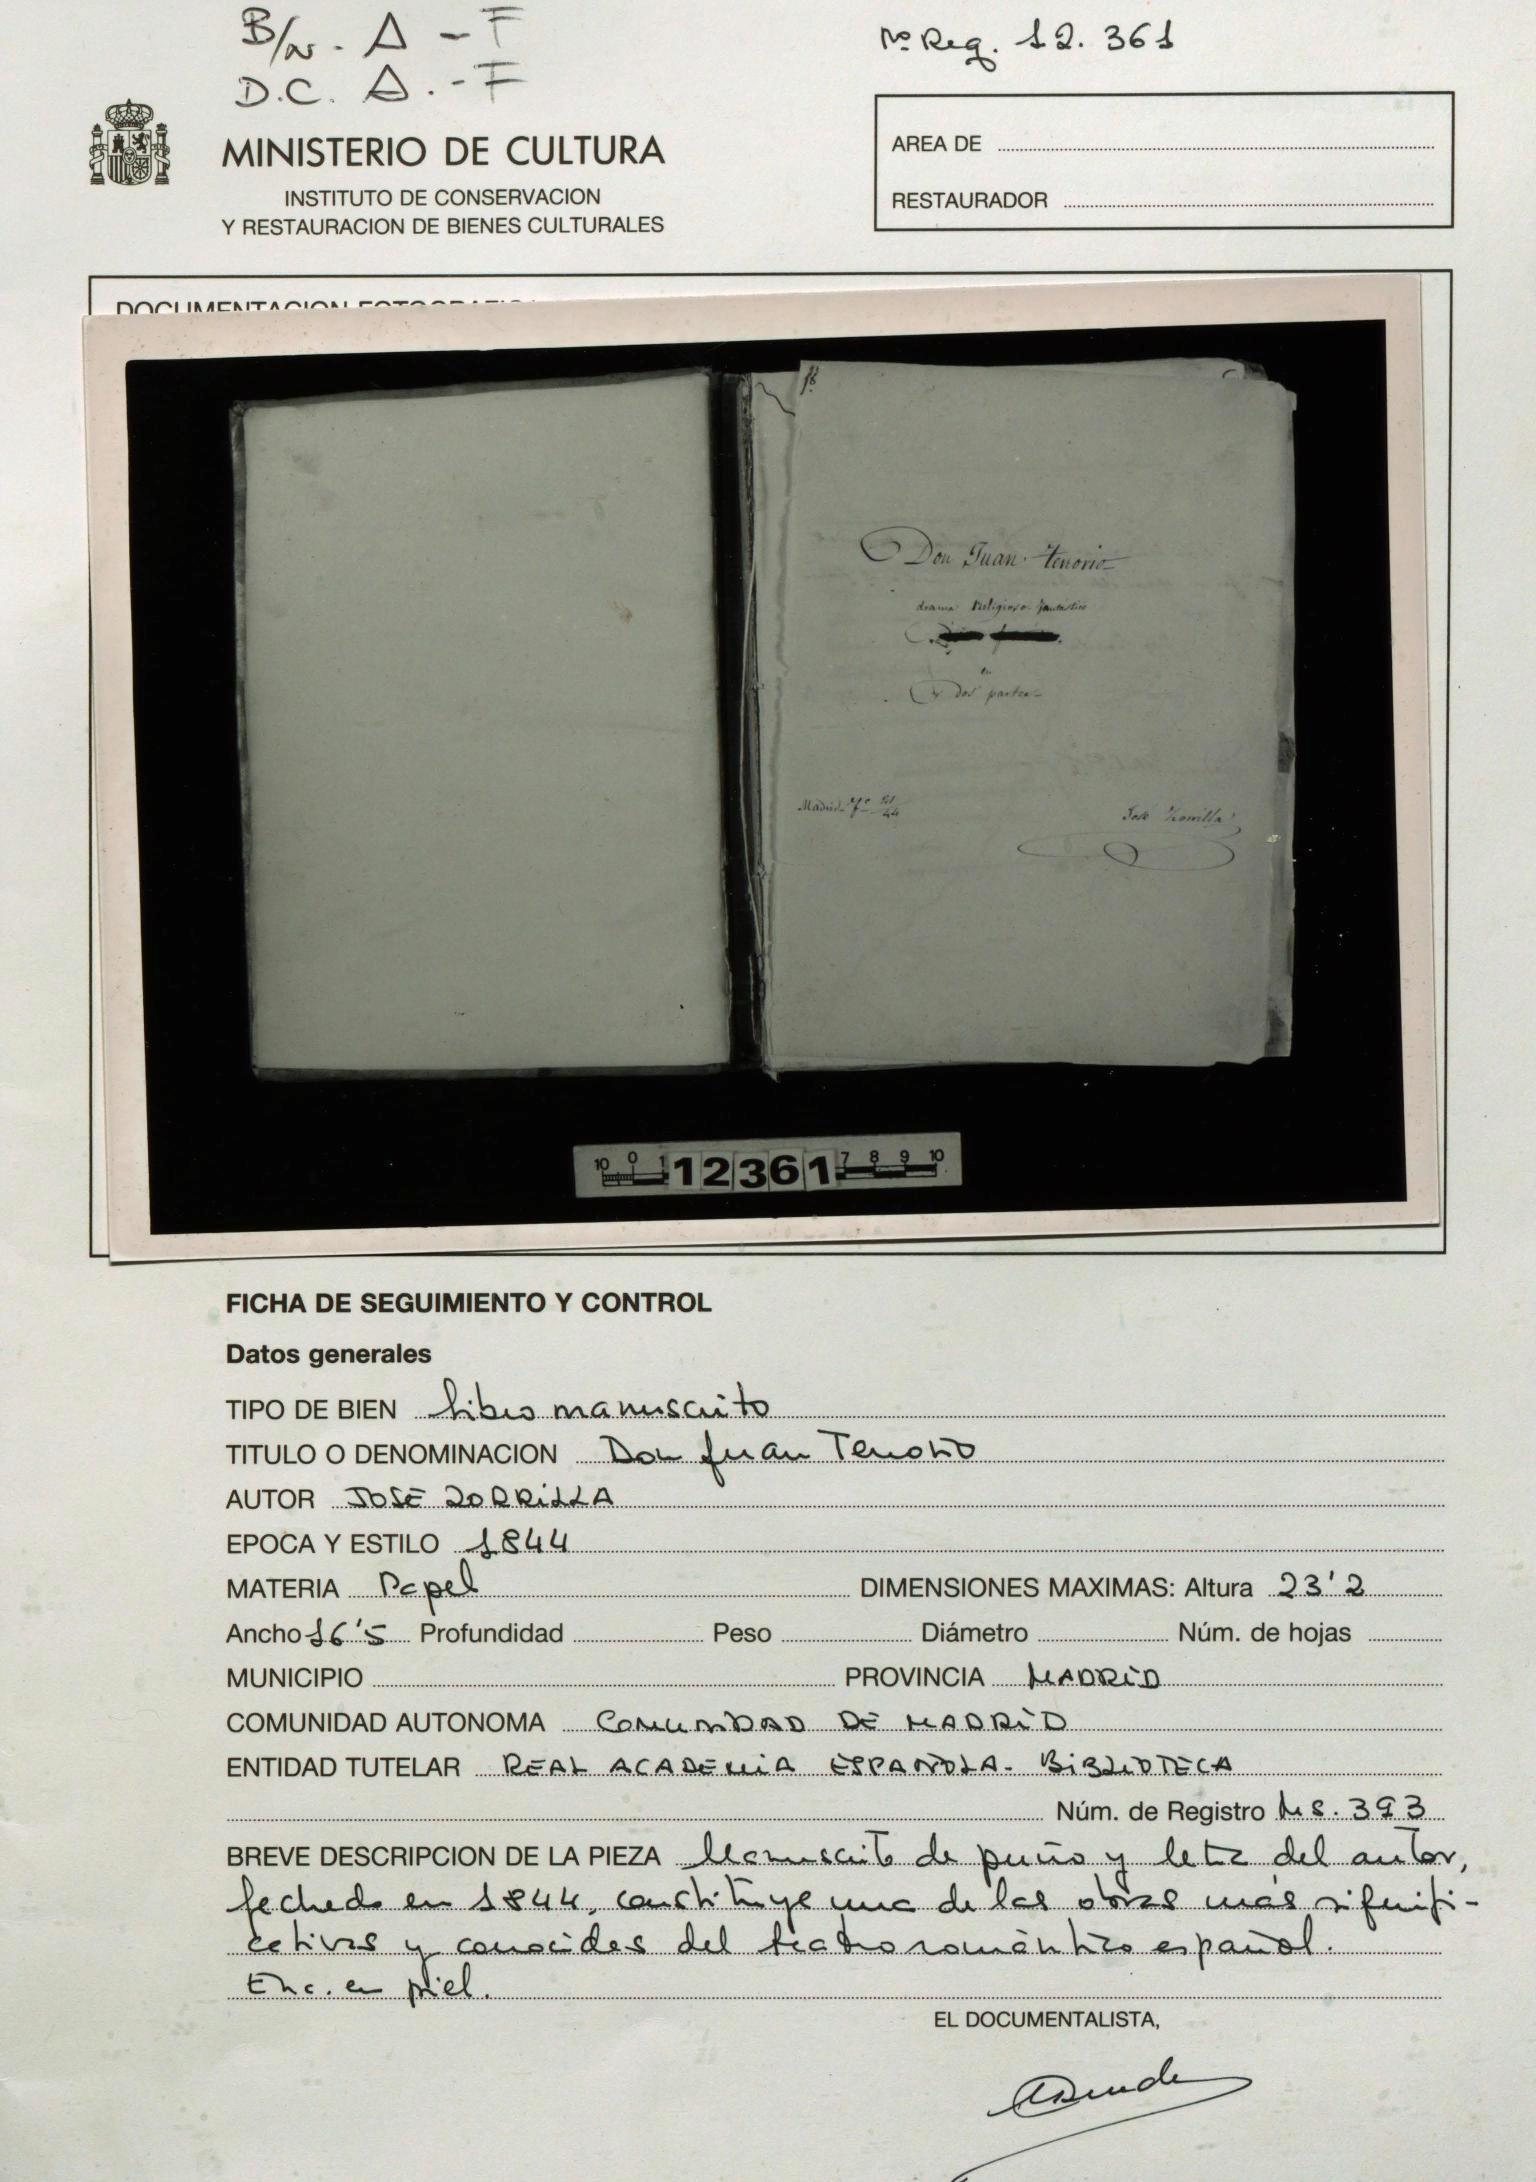 B/N. A - F
D.C. A. - F
Nº Reg. 12.361
MINISTERIO DE CULTURA
INSTITUTO DE CONSERVACION
Y RESTAURACION DE BIENES CULTURALES
AREA DE
RESTAURADOR
DOCUMENTACION FOTOGRAFICA
Don Juan Tenorio
drama religioso-fantástico
en
dos partes
Madrid
José Zorrilla
10 0 1 12361 7 8 9 10
FICHA DE SEGUIMIENTO Y CONTROL
Datos generales
TIPO DE BIEN Libro manuscrito
TITULO O DENOMINACION Don Juan Tenorio
AUTOR JOSE ZORRILLA
EPOCA Y ESTILO 1844
MATERIA Papel DIMENSIONES MAXIMAS: Altura 23'2
Ancho 16'5 Profundidad Peso Diámetro Núm. de hojas
MUNICIPIO PROVINCIA MADRID
COMUNIDAD AUTONOMA COMUNIDAD DE MADRID
ENTIDAD TUTELAR REAL ACADEMIA ESPAÑOLA - BIBLIOTECA
Núm. de Registro Ms. 393
BREVE DESCRIPCION DE LA PIEZA Manuscrito de puño y letra del autor,
fechado en 1844, constituye una de las obras más signifi-
cativas y conocidas del teatro romántico español.
Enc. en piel.
EL DOCUMENTALISTA,